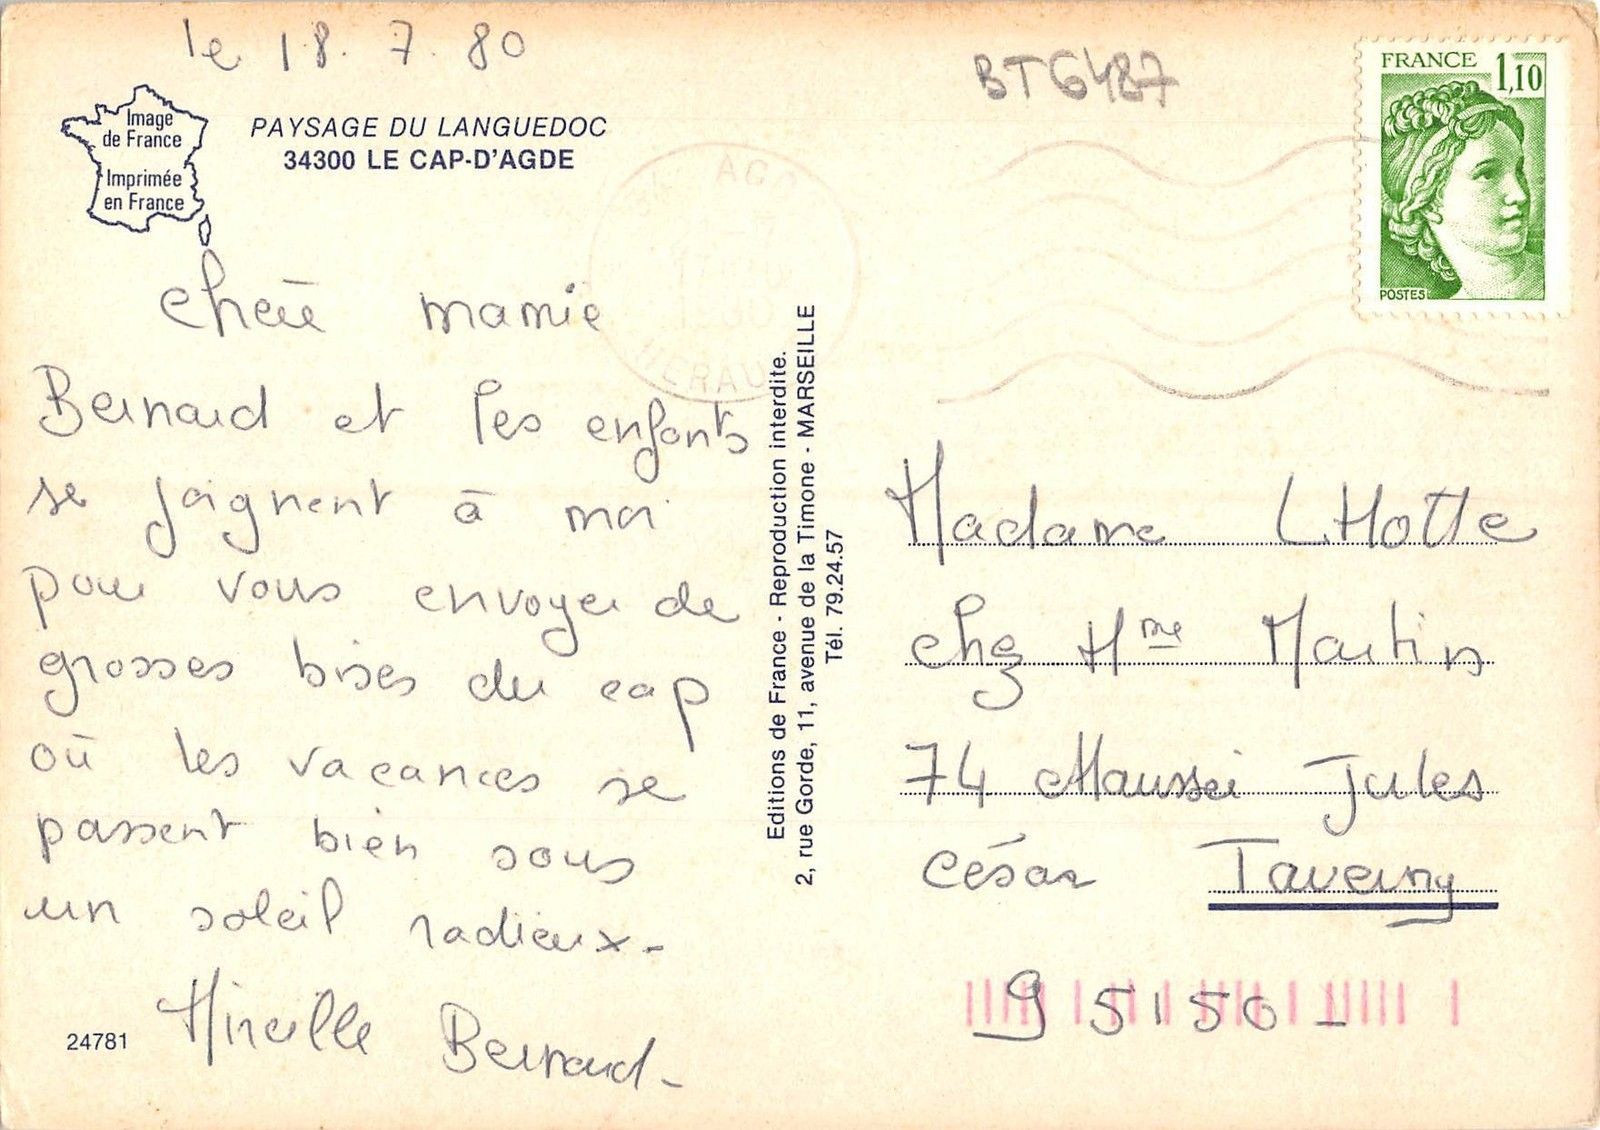 le 18.7.80
BT6487
FRANCE 1,10
POSTES
Image
de France
Imprimée
en France
PAYSAGE DU LANGUEDOC
34300 LE CAP-D'AGDE
HERAU
chère mamie
Bernard et les enfants
se joignent à moi
pour vous envoyer de
grosses bises du cap
où les vacances se
passent bien sous
un soleil radieux-
Mireille Bernard-
24781
Editions de France - Reproduction interdite.
2, rue Gorde, 11, avenue de la Timone - MARSEILLE
Tél. 79.24.57
Madame LHotte
chez Mme Martin
74 Jules
césar Taverny
95150-